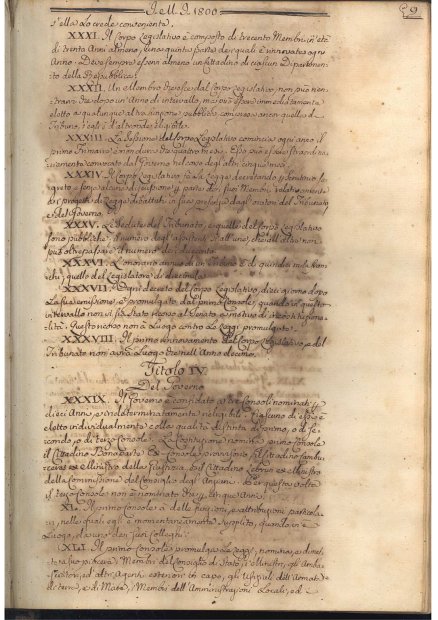 J.M.J. 1800
59
s'ella lo crede conveniente.
XXXI. Il Corpo Legislativo è composto di trecento Membri in età
di trenta Anni almeno, una quinta parte de' quali è rinnovata ogni
Anno. Deve sempre esservi almeno un Cittadino di ciascun Dipartimen-
to della Repubblica.
XXXII. Un Membro che esce dal Corpo Legislativo, non può rien-
trarvi che dopo un'Anno di intervallo, ma può esser immediatamente
eletto a qualunque altra funzione pubblica, compresa anche quella di
Tribuno, s'egli è d'altronde eligibile.
XXXIII. La Sessione del Corpo Legislativo comincia ogni anno il
primo Frimaro, e non dura che quattro mesi. Esso può essere straordina-
riamente convocato dal Governo nel corso degli altri
XXXIV. Il Corpo Legislativo fà la Legge decretando a scrutinio se-
greto e senza alcuna discussione per parte dei suoi Membri
progetti di Legge dibattuti in sua presenza dagli oratori del Tribunato,
e del Governo.
XXXV. Le Sedute del Tribunato, e quelle del Corpo Legislativo
sono pubbliche, il numero degli assistenti sì all'une, che all'altre non
può oltrepassare il numero di duecento.
XXXVI. L'onorario annuo di un Tribuno è di quindici mila fran-
chi, quello del Legislatore di diecimila.
XXXVII. Ogni decreto del Corpo Legislativo, dieci giorni dopo
la sua emissione, è promulgato dal primo Console, quando in questo
intervallo non vi sia stato recorso al Senato per motivo di incostituziona-
lità. Questo recorso non à luogo contro le Leggi promulgate.
XXXVIII. Il primo rinnovamento del Corpo Legislativo, e del
Tribunato non avrà luogo che nell'Anno decimo.
Titolo IV.
Del Governo
XXXIX. Il Governo è confidato a tre Consoli nominati per
dieci Anni, e indeterminatamente rieligibili. Ciascuno di essi è
eletto individualmente colla qualità distinta di primo, o di se-
condo, o di terzo Console. La Costituzione nomina primo Console
il Cittadino Bonaparte ex Console provvisorio, il Cittadino Camba-
ceres ex Ministro della Giustizia, e il Cittadino Lebrun ex Membro
della Commissione del Consiglio degli Anziani. Per questa volta
il terzo Console non è nominato che per cinque Anni.
XL. Il primo Console à delle funzioni, e attribuzioni particola-
ri, nelle quali egli è momentaneamente supplito, quando vi è
luogo, da uno dei suoi Colleghi.
XLI. Il primo Console promulga le Leggi, nomina, e dimet-
te a suo piacere i Membri del Consiglio di Stato, i Ministri, gli Amba-
sciatori, ed altri Agenti esteriori in capo, gli Uffiziali dell'Armata
di terra, e di Mare, i Membri dell'Amministrazioni Locali, ed i